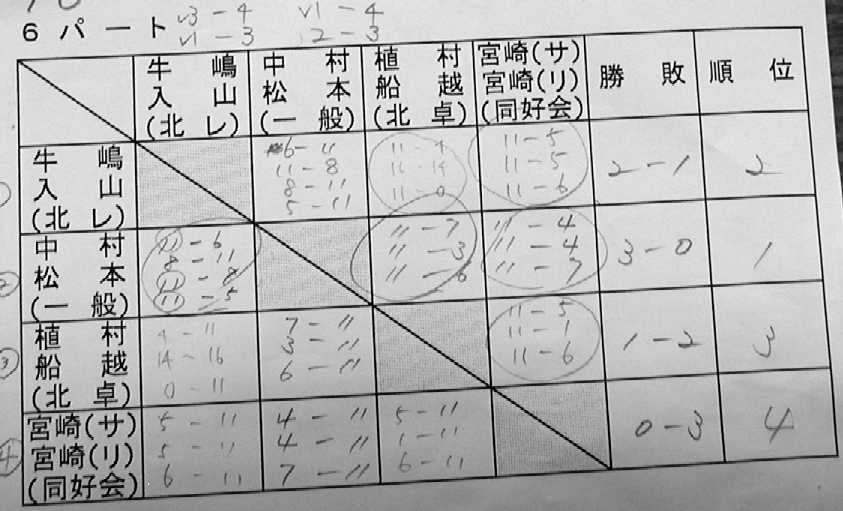 6 パート
v3-4 v1-4
v1-3 2-3
牛嶋 中村 植村 宮崎(サ) 勝敗 順位
入山 松本 船越 宮崎(リ)
(北レ) (一般) (北卓) (同好会)
牛嶋 6-11 11-4 11-5
入山 11-8 16-14 11-5 2-1 2
(北レ) 8-11 11-0 11-6
5-11
中村 11-6 11-7 11-4
松本 8-11 11-3 11-4 3-0 1
(一般) 11-8 11-6 11-7
11-5
植村 4-11 7-11 11-5
船越 14-16 3-11 11-1 1-2 3
(北卓) 0-11 6-11 11-6
宮崎(サ) 5-11 4-11 5-11
宮崎(リ) 5-11 4-11 1-11 0-3 4
(同好会) 6-11 7-11 6-11
②
③
④